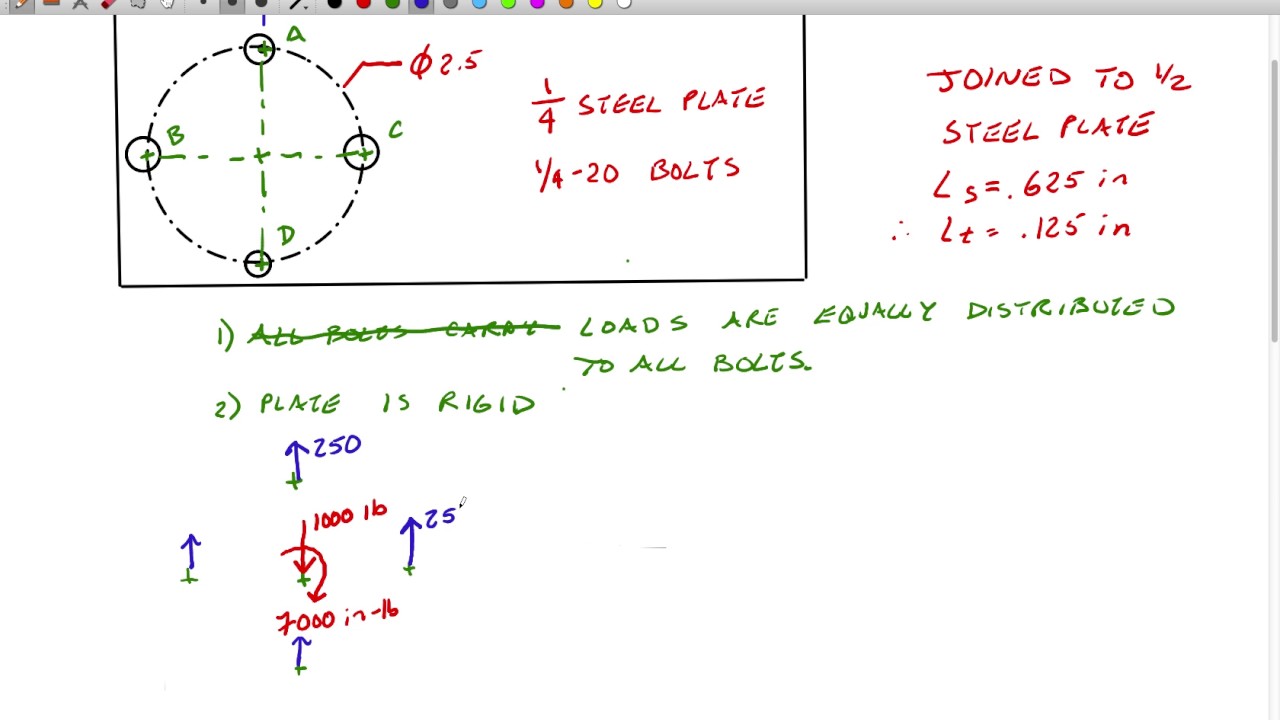 A
Ø2.5
B
C
D
1/4 STEEL PLATE
1/4-20 BOLTS
JOINED TO 1/2
STEEL PLATE
Ls = .625 in
∴ Lt = .125 in
1) ALL BOLTS CARRY LOADS ARE EQUALLY DISTRIBUTED
TO ALL BOLTS.
2) PLATE IS RIGID
250
1000 lb
25
7000 in-lb